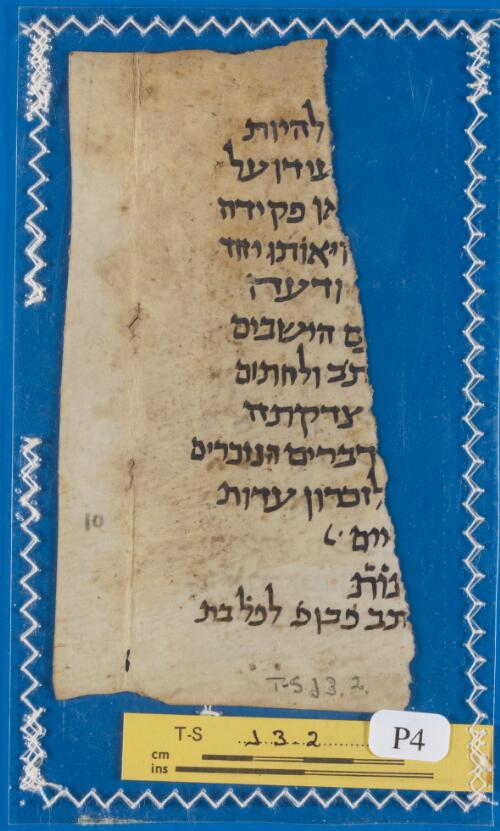 להיות
עידן על
פקידה
ויאותו יחד
ודעה
ם הישבים
תב ולחתום
צדקתה
דברים הנזכרים
לזכרון עדות
יום
תב לכל בת
10
T-S J 3. 2.
T-S J 3 2
cm
ins
P4